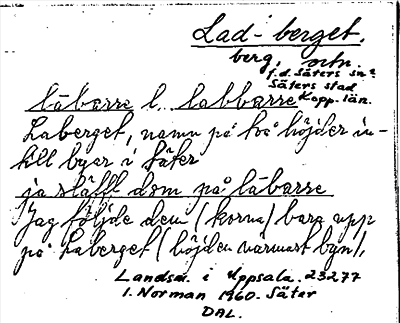 Lad-berget.
berg, ortn.
f.d. Säters sn.
Säters stad
Kopp. län.
läbärre l. labbarre
Laberget, namn på två höjder in-
till byar i Säter
ja släfft dom på läbarre
Jag följde dem (korna) bara upp
på Laberget (höjden närmast byn),
Landsm. i Uppsala. 23277
I. Norman 1960. Säter
DAL.